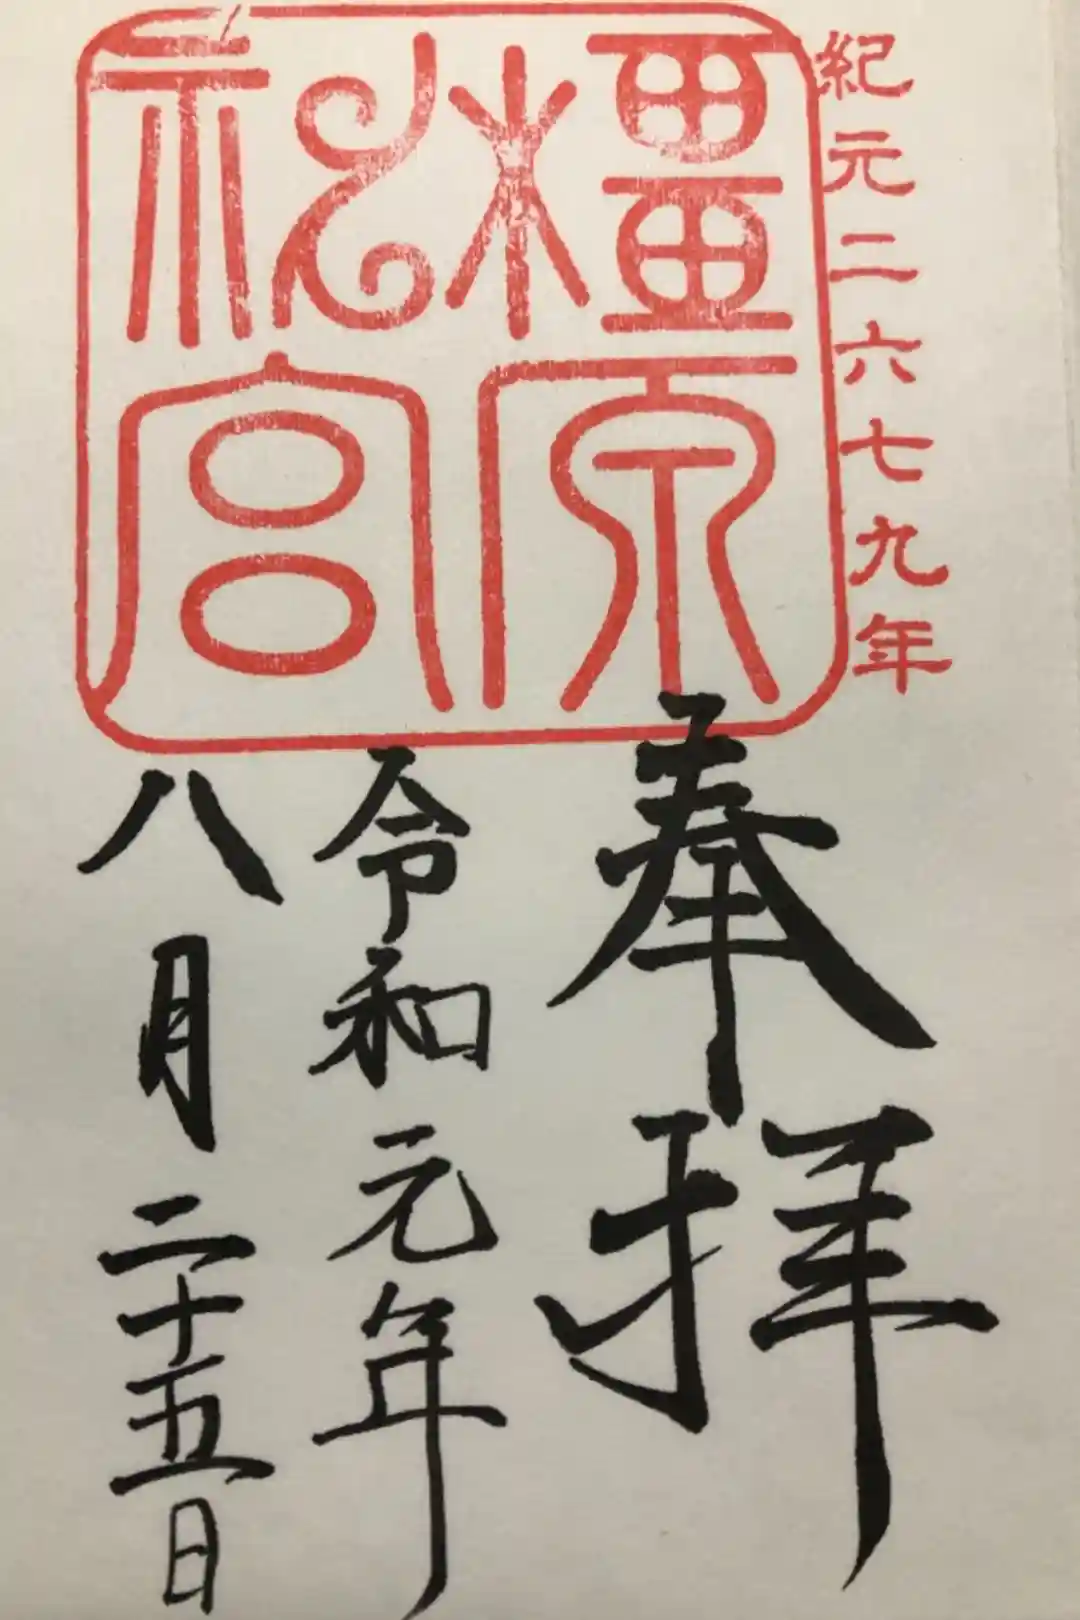 紀元二六七九年
橿原
神宮
奉拝
令和元年
八月二十五日